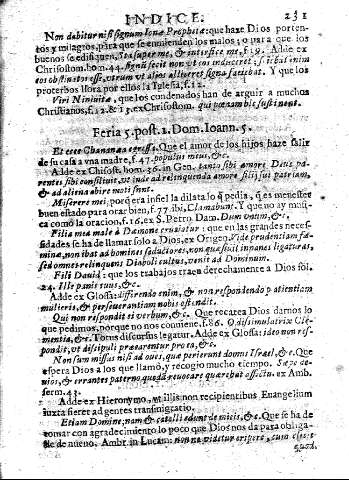 INDICE. 231
Non dabitur nisi signum Ionæ Prophetæ: que haze Dios porten-
tos y milagros, para que se enmienden los malos; o para que los
buenos se edifiquen, Ita super me, & interfice me, f.19. Adde ex
Chrisostom. hom. 44. signũ fecit non vt eos induceret; sciebat enim
eos obstinatos esse, verum vt alios alliceret signa faciebat. Y que los
proterbos llora por ellos la Iglesia, f.12.
Viri Niniuitæ, que los condenados han de arguir a muchos
Christianos, f.12. & 13. ex Chrisostom.
Feria 5. post 1. Dom. Ioann. 5.
Et ecce Chananæa egressa, Que el amor de los hijos haze salir
de su casa a vna madre, f.47. populus meus, &c.
Adde ex Chrisost. hom. 36. in Gen. tanto sibi amore Deus pa-
rentes sibi constituit, vt inde ad relinquenda amore sui, sus patriam,
& ad aliena abire moti sunt.
Miserere mei, porq̃ era infiel la dilato lo q̃ pedia, q̃ es menester
buen estado para orar bien, f.77. ibi, Clamabunt. Y que no ay musi-
ca como la oracion, f.16. ex S. Petro. Dam. Dum votum, &c.
Filia mea male à Dæmone cruciatur: que en las grandes neces-
sidades se ha de llamar solo a Dios, ex Origen. Vide prudentiam fœ-
minæ, non ibat ad homines seductores, non quæsiuit inanes ligaturas,
sed omnes relinquens Diaboli cultus, venit ad Dominum.
Fili Dauid: que los trabajos traen derechamente a Dios fol.
24. Ille panis tuus, &c.
Adde ex Glossa: differendo enim, & non respondendo patientiam
mulieris, & perseuerantiam nobis ostendit.
Qui non respondit ei verbum, &c. Que recatea Dios darnos lo
que pedimos, porque no nos conuiene, f.86. O dissimulatrix Cle-
mentia, &c. Totus discursus legatur. Adde ex Glossa: ideo non res-
pondit, vt discipuli precarentur pro ea, &c.
Non sum missus nisi ad oues, quæ perierunt domui Israel, &c. Que
espera Dios a los que llamó, y recogio mucho tiempo. Sæpe de-
uios, & errantes paterno quodã reuocare quærebat affectu. ex Amb.
serm. 43.
Adde ex Hieronymo, vt illis non recipientibus Euangelium
iuxta fieret ad gentes transmigratio.
Etiam Domine; nam & catelli edunt de micis, &c. Que se ha de
tomar con agradecimiento lo poco que Dios nos da para obliga-
de de nueuo. Ambr. in Lucam: non na videtur eripere, cum